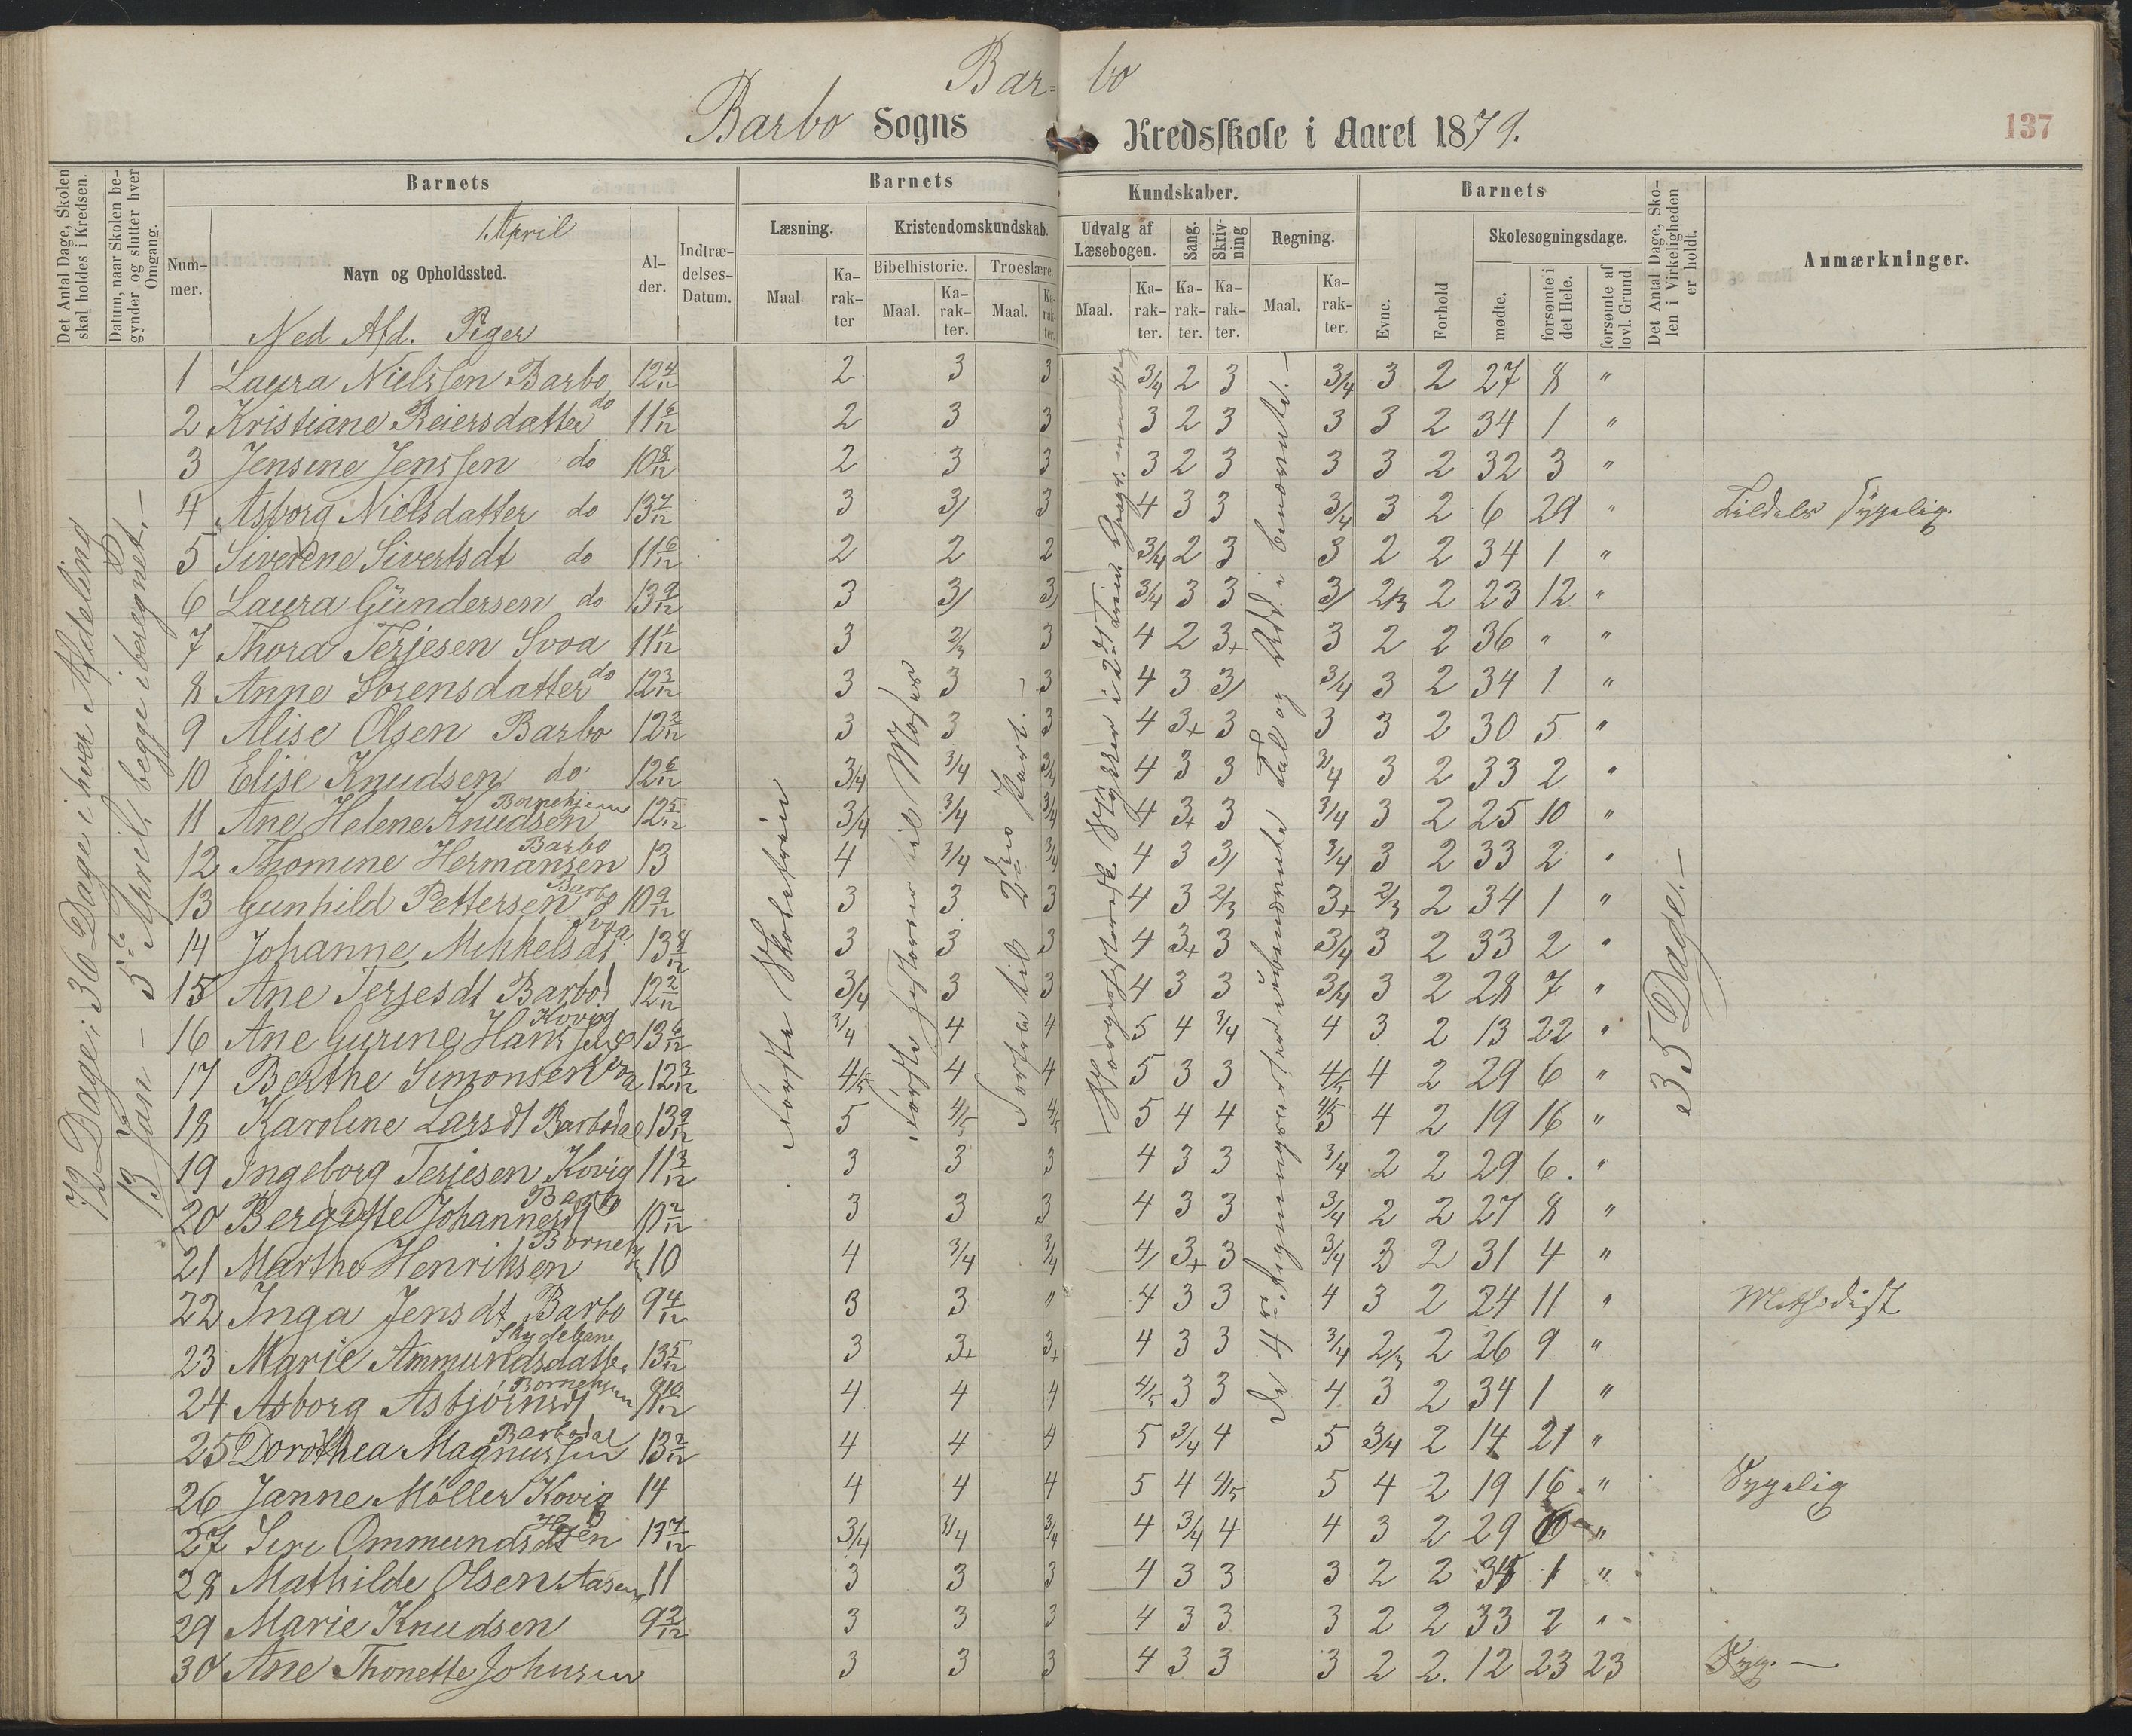 Bar= bo
Barbo Sogns Kredsskole i Aaret 1879.
137
Det Antal Dage, Skolen skal holdes i Kredsen.
Datum, naar Skolen begynder og slutter hver Omgang.
Barnets
Nummer.
1. April
Navn og Opholdssted.
Ned Afd. Piger
Alder.
Indtrædelses-Datum.
Barnets Kundskaber.
Læsning.
Maal.
Karakter
Kristendomskundskab.
Bibelhistorie.
Maal.
Karakter.
Troeslære.
Maal.
Karakter.
Udvalg af Læsebogen.
Maal.
Karakter.
Sang.
Karakter.
Skrivning
Karakter.
Regning.
Maal.
Karakter.
Barnets
Evne.
Forhold
Skolesøgningsdage.
mødte.
forsømte i det Hele.
forsømte af lovl. Grund.
Det Antal Dage, Skolen i Virkeligheden er holdt.
Anmærkninger.
72 Dage; 36 Dage i hver Afdeling
13 Jan – 5te April, begge iberegnet.–
Første
Første til Moses
til 2den Part.
35 Dage.–
1 Laura Nielssen Barbo 12 4/12 2 3 3 3/4 2 3 3/4 3 2 27 8 "
2 Kristiane Reiersdatter do 11 6/12 2 3 3 3 2 3 3 3 2 34 1 "
3 Jensine Jenssen do 10 8/12 2 3 3 3 2 3 3 3 2 32 3 "
4 Asborg Nielsdatter do 13 7/12 3 3/ 3 4 3 3 3/4 3 2 6 29 " Tildels Sygelig.
5 Siverene Sivertsdt do 11 6/12 2 2 2 3/4 2 3 3 2 2 34 1 "
6 Laura Gundersen do 13 9/12 3 3/ 3/ 3/4 3 3 3/ 2/3 2 23 12 "
7 Thora Terjesen Svoa 11 1/12 3 2/3 3 4 2 3+ 3 2 2 36 " "
8 Anne Sorensdatter do 12 3/12 3 3 3 4 3 3/ 3/4 3 2 34 1 "
9 Alise Olsen Barbo 12 2/12 3 3 3 4 3+ 3 3 3 2 30 5 "
10 Elise Knudsen do 12 6/12 3/4 3/4 3/4 4 3 3 3/4 3 2 33 2 "
11 Ane Helene Knudsen Bornehjem 12 5/12 3/4 3/4 3/4 4 3+ 3 3/4 3 2 25 10 "
12 Thomine Hermansen Barbo 13 4 3/4 3/4 4 3 3/ 3/4 3 2 33 2 "
13 Gunhild Pettersen Barbo 10 9/12 3 3 3 4 3 2/3 3+ 2/3 2 34 1 "
14 Johanne Mikkelsdt Svoa 13 8/12 3 3 3 4 3+ 3 3/4 3 2 33 2 "
15 Ane Terjesdt Barbod 12 2/12 3/4 3 3 4 3 3 3/4 3 2 28 7 "
16 Ane Gurine Hanssen Kovig 13 6/12 3/4 4 4 5 4 3/4 4 3 2 13 22 "
17 Berthe Simonsen Svoa 12 3/12 4/5 4 4 5 3 3 4/5 4 2 29 6 "
18 Karoline Larsdt Barbodal 13 9/12 5 4/5 4/5 5 4 4 4/5 4 2 19 16 "
19 Ingeborg Terjesen Kovig 11 3/12 3 3 3 4 3 3 3/4 2 2 29 6. "
20 Bergitte Johannesdt Barbo 10 2/12 3 3 3 4 3 3 3/4 2 2 27 8 "
21 Marthe Henriksen Bornehjem 10 4 3/4 3/4 4/ 3+ 3 3/4 3 2 31 4 "
22 Inga Jensdt Barbo 9 4/12 3 3 " 4 3 3 4 3 2 24 11 " Methodist
23 Marie Ammundsdatter Skydebane 13 5/12 3 3+ 3+ 4 3 3 3/4 2/3 2 26 9 "
24 Asborg Asbjörnsdt Bornehjem 9 10/12 4 4 4 4/5 3 3 4 3 2 34 1 "
25 Dorothea Magnussen Barbodal 13 2/12 4 4 4 5 3/4 4 5 3/4 2 14 21 "
26 Janne Möller Kovig 14 4 4 4 5 4 4/5 5 4 2 19 16 " Sygelig
27 Siri Ommundsdt 13 7/12 3/4 3/4 3/4 4 3/4 4 4 3 2 29 6 "
28 Mathilde Olsen 11 3 3 3 4 3 3 3 2 2 34 1 "
29 Marie Knudsen 9 3/12 3 3 3 4 3 3 3 2 2 33 2 "
30 Ane Thonette Johnsen 3 3 3 4 3 3 3 2 2. 12 23 23 Syg.–